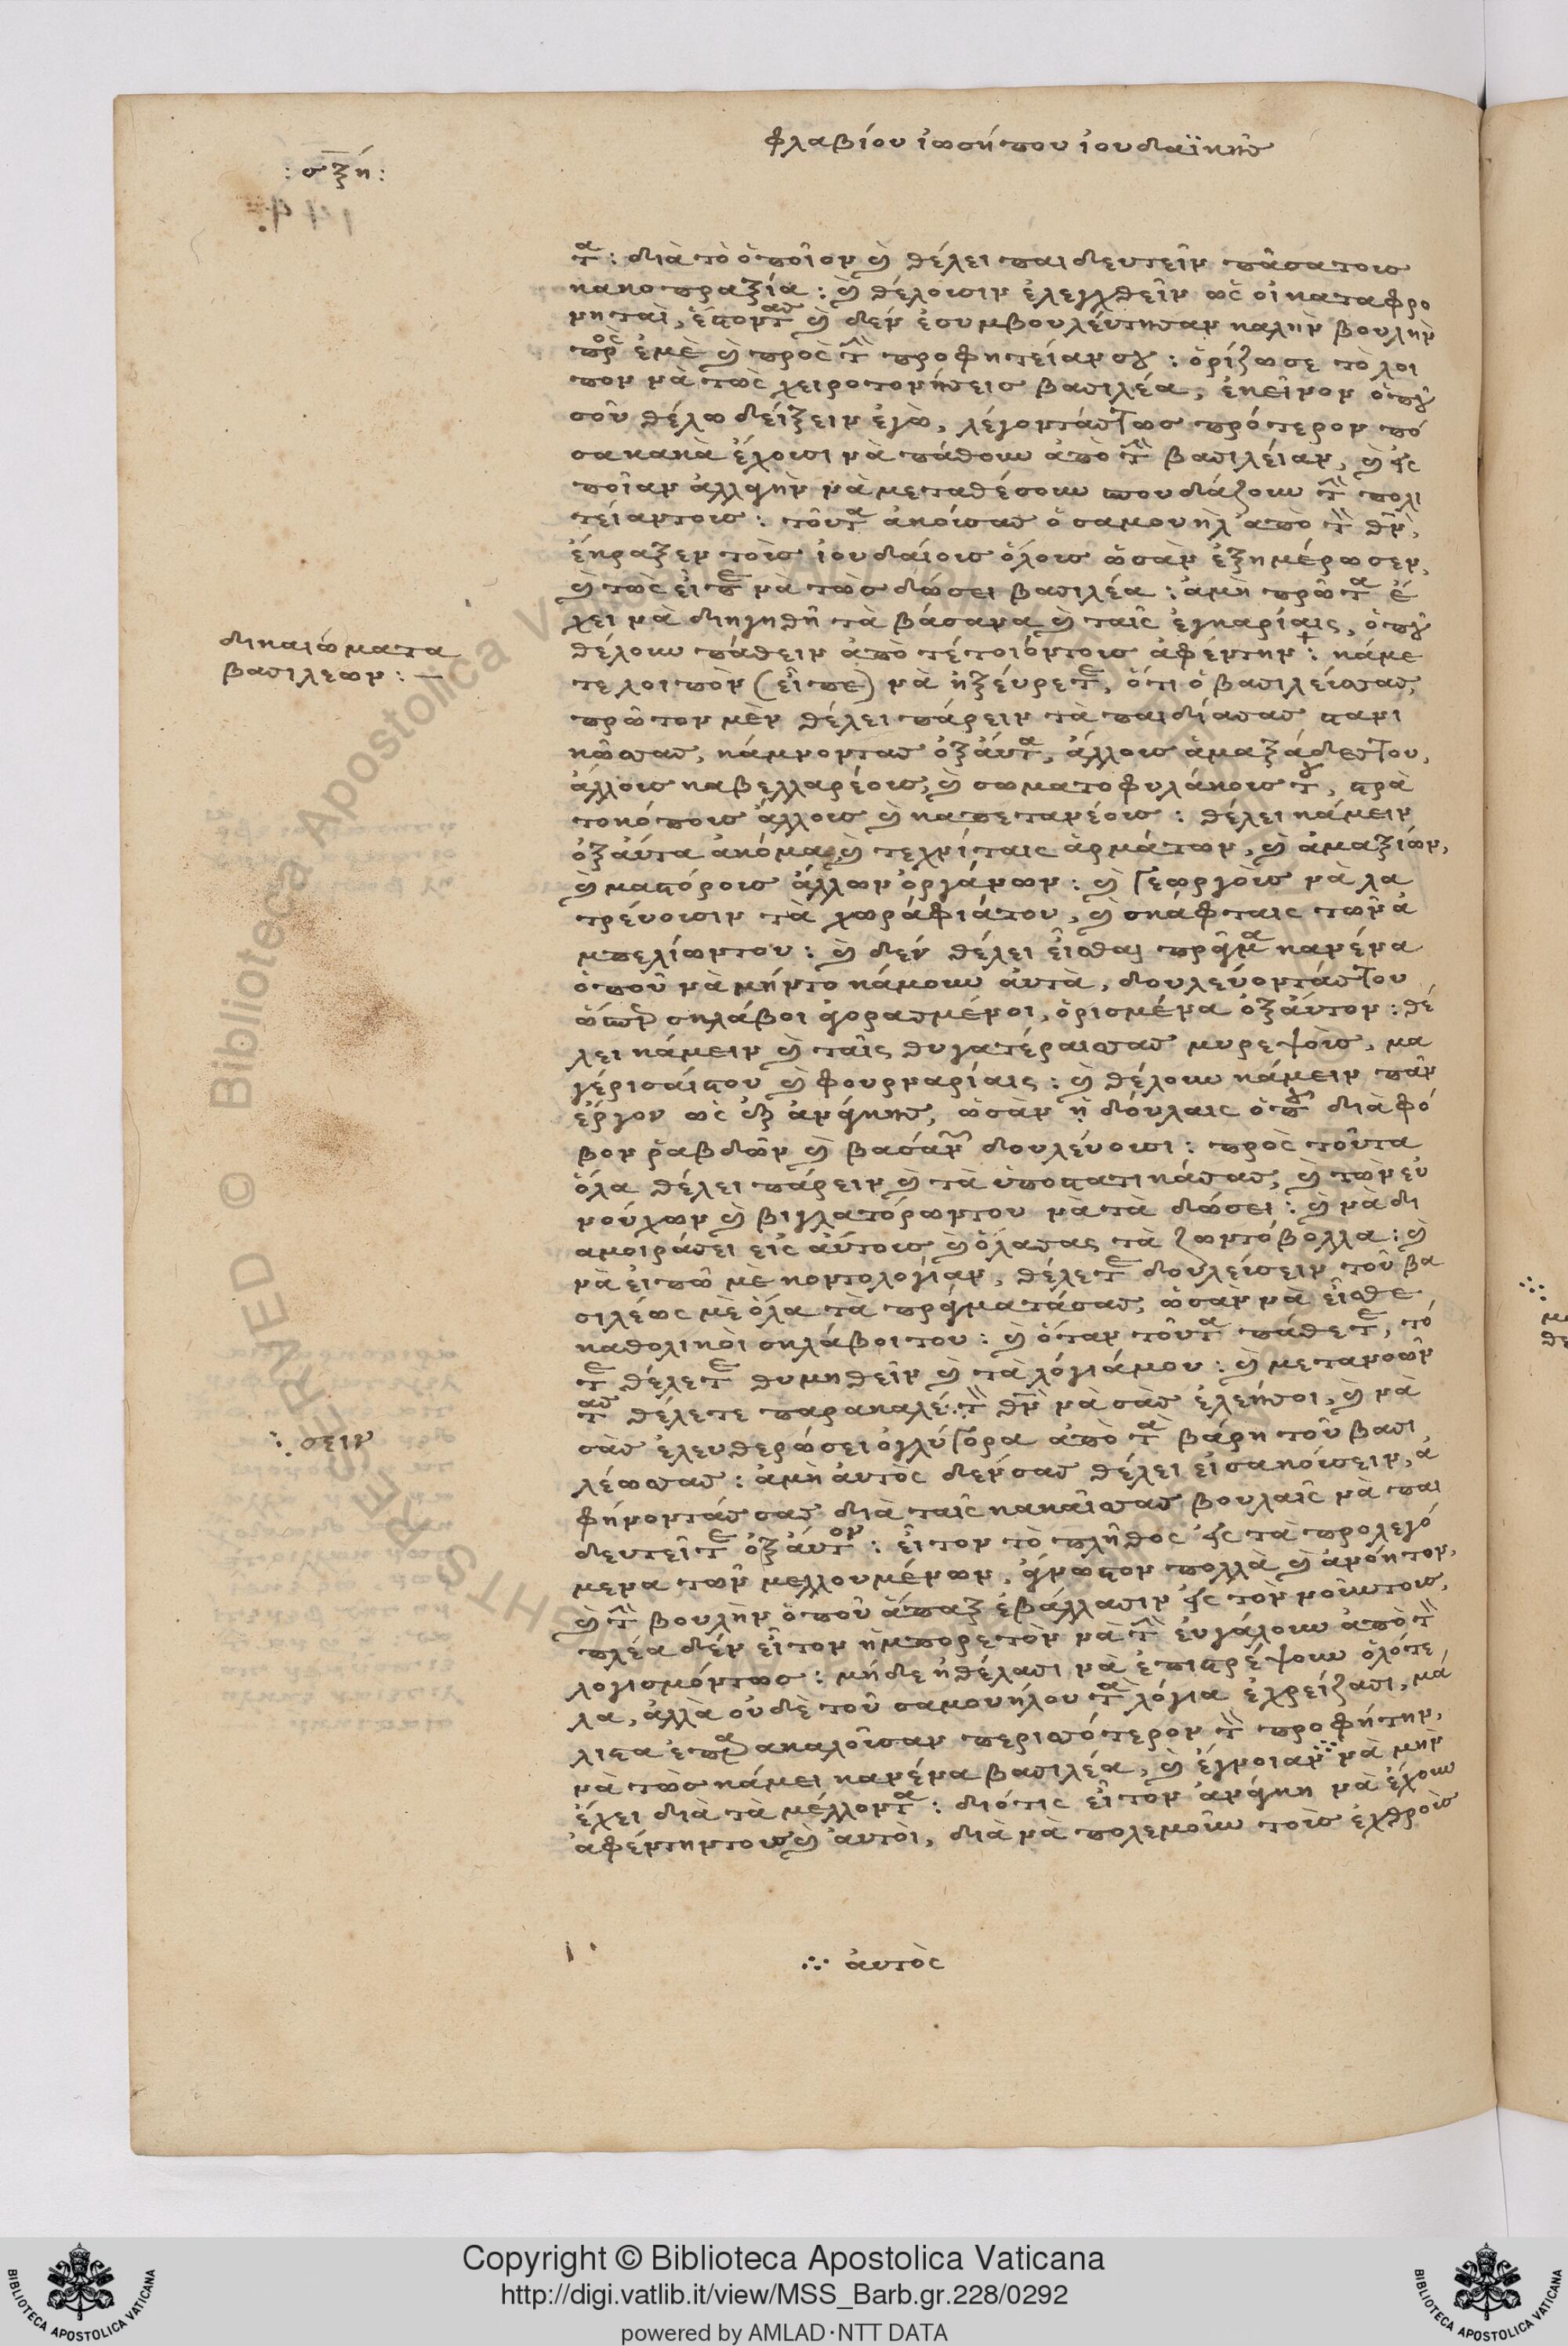 φλαβίου ἰωσήπου ἰουδαϊκῆς
: σξη :
τα: διὰ τὸ ὁποῖον καὶ θέλει παιδευτεῖν πᾶσα τους
κακοπραξία: καὶ θέλουσιν ἐλεγχθεῖν ὡς οἱ καταφρο
νηταὶ, ἔστοντας καὶ δὲν ἐσυμβουλεύτησαν καλὴν βουλὴν
πρὸς ἐμὲ καὶ πρὸς τὴν προφητείαν σου: ὁρίζω σε τὸ λοι
πον νὰ τὼς χειροτονήσεις βασιλέα, ἐκεῖνον ὁποῦ
σοῦ θέλω δείξειν ἐγὼ, λέγοντάς τως πρότερον πό
σα κακὰ ἔχουσι νὰ πάθουν ἀπὸ τὴν βασιλείαν, καὶ εἰς
ποῖαν ἀλλαγὴν νὰ μεταθέσουν σπουδάζουν τὴν πολι
τείαν τους: τοῦτα ἀκούσας ὁ σαμουὴλ ἀπὸ τὸν θεὸν,
ἔκραξεν τοὺς ἰουδαίους ὅλους ὡσὰν ἐξημέρωσεν,
καὶ τὼς εἶπε νὰ τὼς δώσει βασιλέα: ἀμὴ πρῶτα ἔ
χει νὰ διηγηθῆ τὰ βάσανα καὶ ταῖς ἐγκαρίαις, ὁποῦ
θέλουν πάθειν ἀπὸ τέτοιόν τους ἀφέντην: κάμε
δικαιώματα
βασιλεων: —
τε λοιπὸν (εἶπε) νὰ ἠξεύρετε, ὅτι ὁ βασιλείς σας,
πρῶτον μὲν θέλει πάρειν τὰ παιδία σας στανι
κῶς σας, κάμνοντας ὀξ αὖτα, ἄλλους ἁμαξάδες του,
ἄλλους καβελλαρέους, καὶ σωματοφυλάκους του, στρα
τοκόπους ἄλλους καὶ καπετανέους: θέλει κάμειν
ὀξ αὖτα ἀκόμα καὶ τεχνίταις ἁρμάτων, καὶ ἁμαξιῶν,
καὶ μαστόρους ἄλλων ὀργάνων: καὶ γεωργοὺς νὰ λα
τρέυουσιν τὰ χωράφιά του, καὶ σκάφταις τῶν ἀ
μπελίων του: καὶ δὲν θέλει εἶσθαι πρᾶγμα κανένα
ὁποῦ νὰ μήν το κάμουν αὐτὰ, δουλεύοντάς του
σκλάβοι ἀγορασμένοι, ὁρισμένα ὀξ αὖτον: θέ
λει κάμειν καὶ ταῖς θυγατέραις σας μυρεψοὺς, μα
γέρισαίς του καὶ φουρναρίαις: καὶ θέλουν κάμειν πᾶν
ἔργον ὡς ἐξ ἀνάγκης, ὡσὰν ἡ δούλαις ὁποῦ διὰ φό
βον ραβδῶν καὶ βασάνων δουλεύουσι: πρὸς τοῦτα
ὅλα θέλει πάρειν καὶ τὰ ὑποστατικά σας, καὶ τῶν εὐ
νούχων καὶ βιγλατόρων του νὰ τὰ δώσει: καὶ νὰ δι
αμοιράσει εἰς αὐτοὺς καὶ ὅλα σας τὰ ζωντόβολλα: καὶ
νὰ εἰπῶ μὲ κοντολογίαν, θέλετε δουλείσειν τοῦ βα
σιλέως μὲ ὅλα τὰ πράγματά σας, ὡσὰν νὰ εἶσθε
καθολικοὶ σκλάβοι του: καὶ ὅταν τοῦτα πάθετε, τό
τε θέλετε θυμηθεῖν καὶ τὰ λόγιά μου: καὶ μετανοῶν
τας θέλετε παρακαλέ∴ τὸν θεὸν νὰ σᾶς ἐλεήσοι, καὶ νὰ
∴ σειν
σᾶς ἐλευθερώσει ὀγλύγορα ἀπὸ τὰ βάρη τοῦ βασι
λέως σας: ἀμὴ αὐτὸς δὲν σας θέλει εἰσακούσειν, ἀ
φήνοντάς σας διὰ ταῖς κακαῖς σας βουλαῖς νὰ παι
δευτεῖτε ὀξ αὖτον: εἶτον τὸ πλῆθος εἰς τὰ προλεγό
μενα τῶν μελλουμένων, ἄγνωστον πολλὰ καὶ ἀνόητον,
καὶ τὴν βουλὴν ὁποῦ ἅπαξ ἐβάλλασιν εἰς τὸν νοῦν τους,
πλέα δὲν εἶτον ἠμπορετὸν νὰ τὴν ἐυγάλουν ἀπὸ τὸν
λογισμόν τως: μήδε ἠθέλασι νὰ ἐπιστρέψουν ὁλότε
λα, ἀλλὰ οὐδὲ τοῦ σαμουήλου τὰ λόγια ἐχρείζασι, μά
λιστα ἐπαρακαλοῦσαν περισσότερον τὸν προφήτην,
νὰ τὼς κάμει κανένα βασιλέα, καὶ ἔγνοιαν∴ νὰ μὴν
ἔχει διὰ τὰ μέλλοντα: διότις εἶτον ἀνάγκη νὰ ἔχουν
ἀφέντην τους καὶ αὐτοὶ, διὰ νὰ πολεμοῦν τοὺς ἐχθροὺς
∴ ἀυτὸς
Copyright © Biblioteca Apostolica Vaticana
http://digi.vatlib.it/view/MSS_Barb.gr.228/0292
powered by AMLAD·NTT DATA
BIBLIOTECA APOSTOLICA VATICANA
BIBLIOTECA APOSTOLICA VATICANA